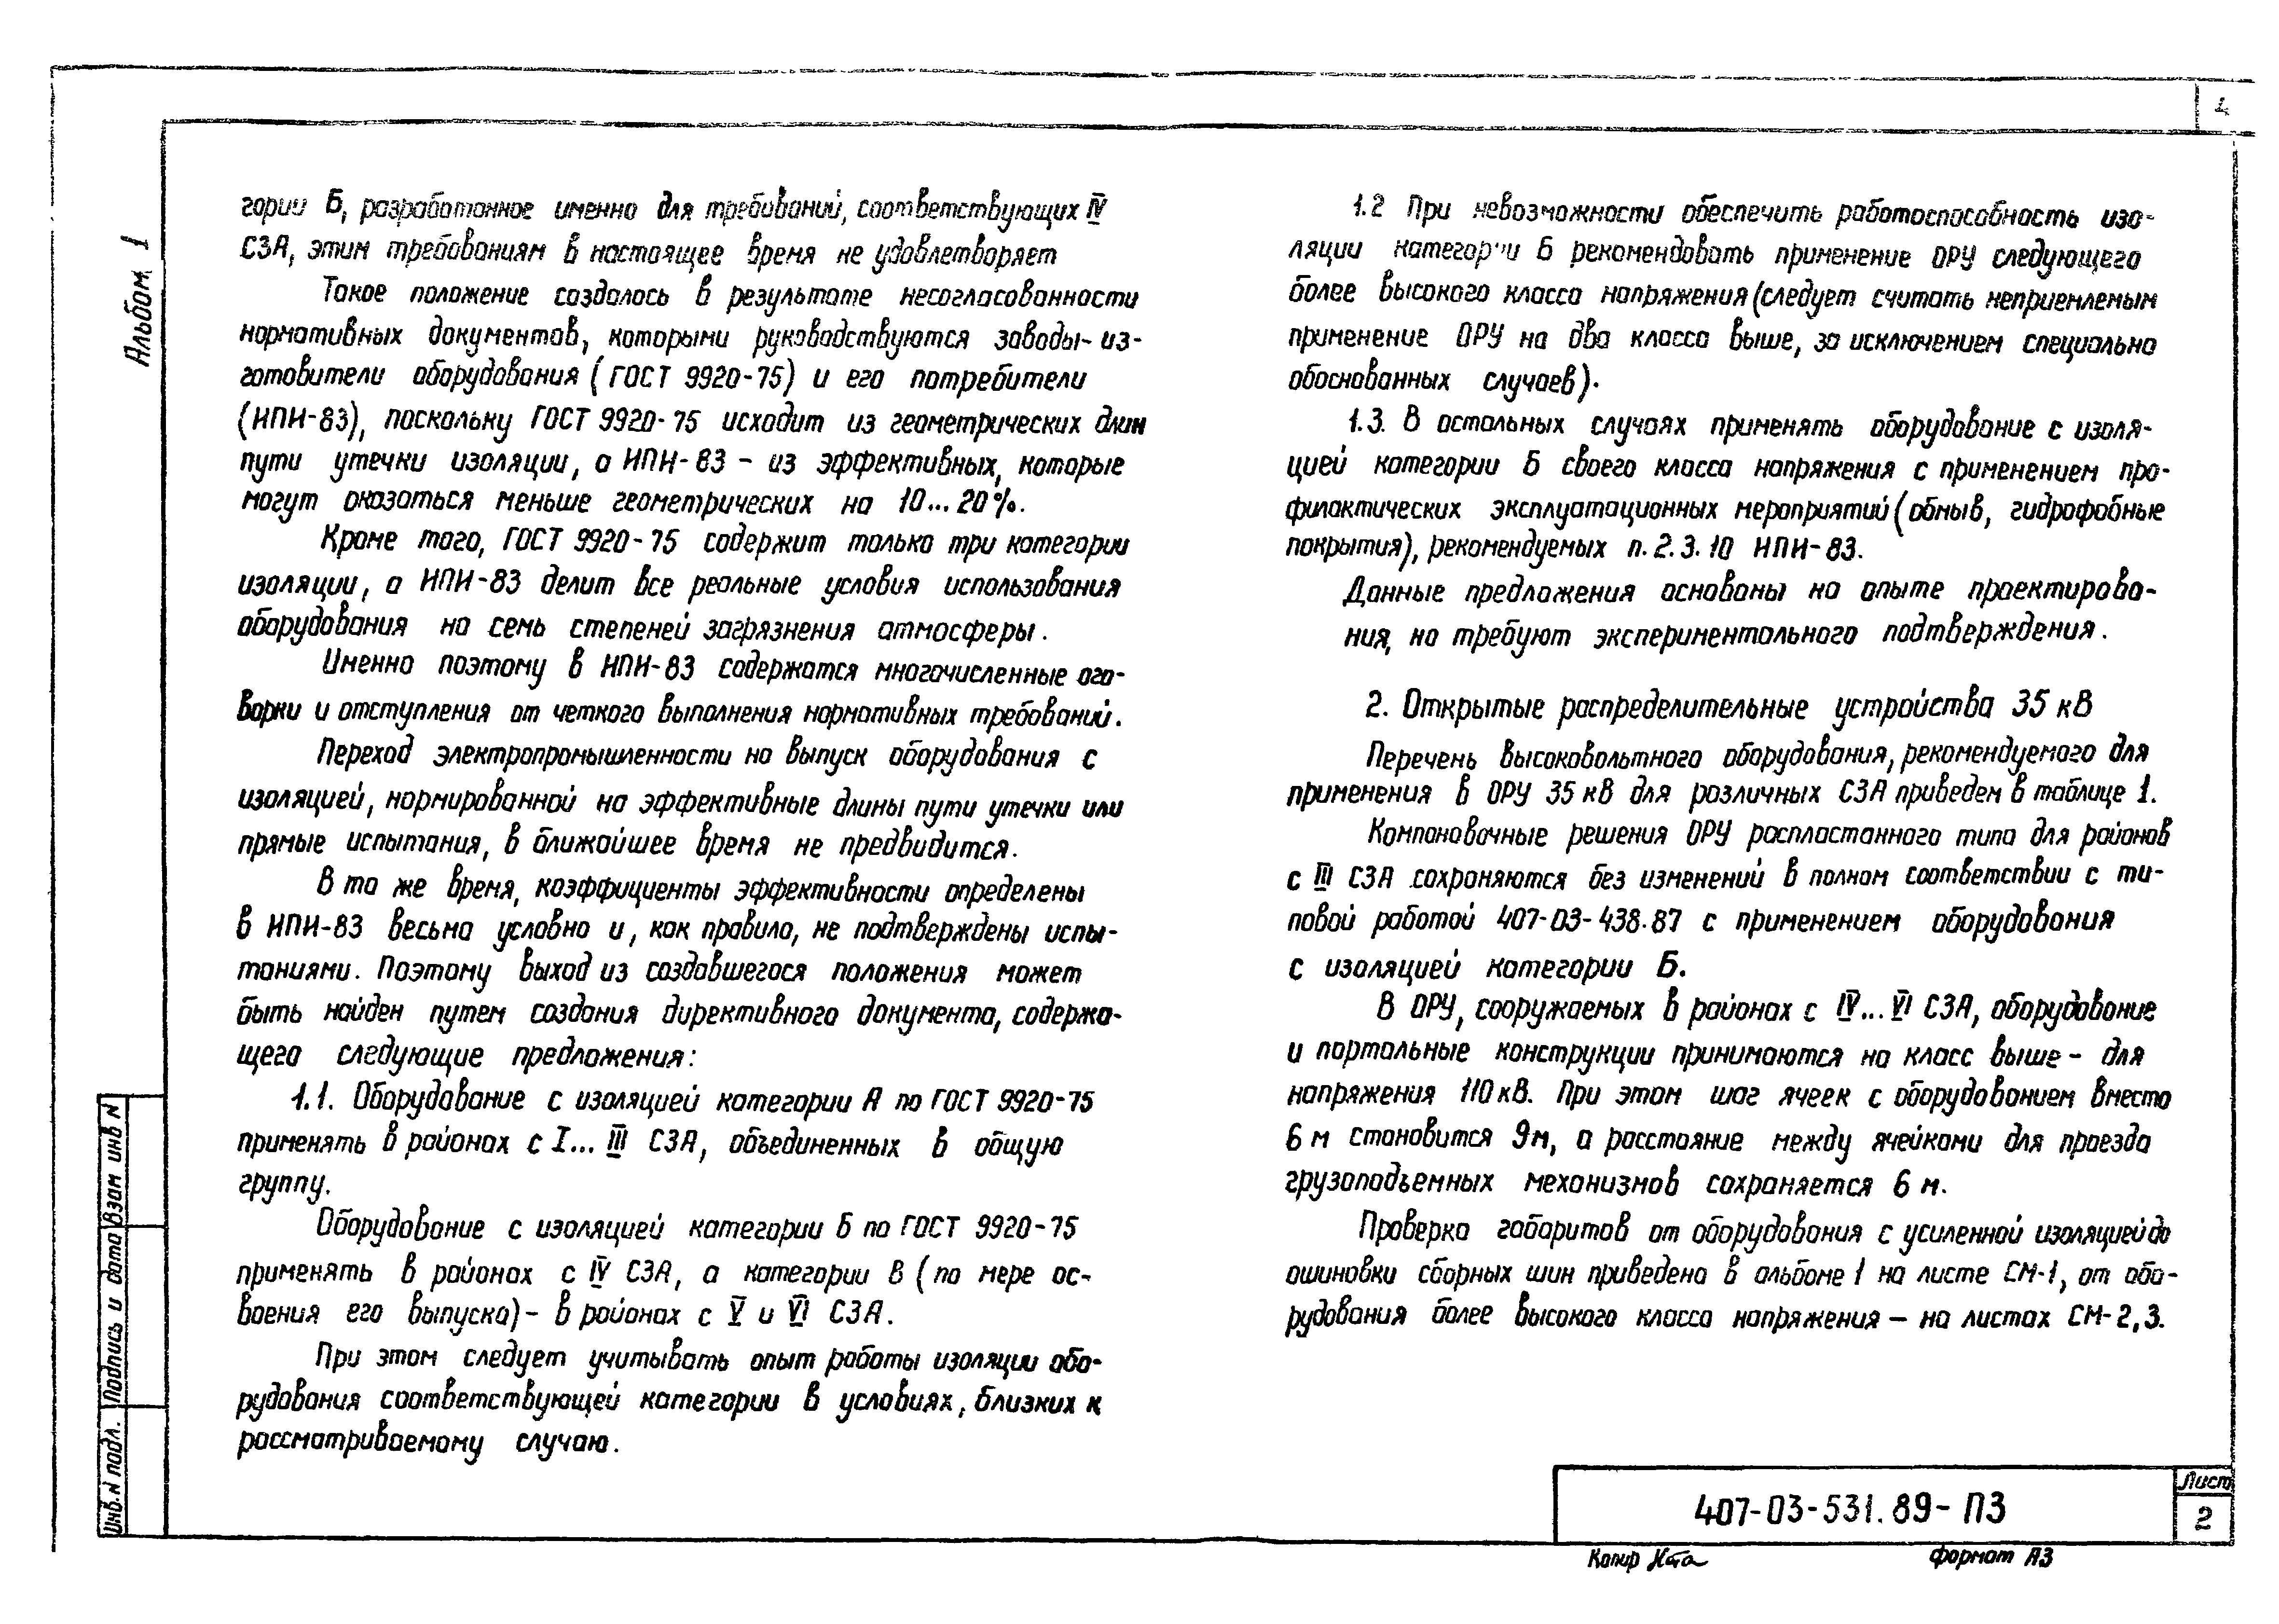 4
Альбом 1
гории Б, разработанное именно для требований, соответствующих IV
СЗА, этим требованиям в настоящее время не удовлетворяет
Такое положение создалось в результате несогласованности
нормативных документов, которыми руководствуются заводы-из-
готовители оборудования (ГОСТ 9920-75) и его потребители
(ИПИ-83), поскольку ГОСТ 9920-75 исходит из геометрических длин
пути утечки изоляции, а ИПИ-83 - из эффективных, которые
могут оказаться меньше геометрических на 10...20%.
Кроме того, ГОСТ 9920-75 содержит только три категории
изоляции, а ИПИ-83 делит все реальные условия использования
оборудования на семь степеней загрязнения атмосферы.
Именно поэтому в ИПИ-83 содержатся многочисленные ого-
ворки и отступления от четкого выполнения нормативных требований.
Переход электропромышленности на выпуск оборудования с
изоляцией, нормированной на эффективные длины пути утечки или
прямые испытания, в ближайшее время не предвидится.
В то же время, коэффициенты эффективности определены
в ИПИ-83 весьма условно и, как правило, не подтверждены испы-
таниями. Поэтому выход из создавшегося положения может
быть найден путем создания директивного документа, содержа-
щего следующие предложения:
1.1. Оборудование с изоляцией категории А по ГОСТ 9920-75
применять в районах с I... III СЗА, объединенных в общую
группу.
Оборудование с изоляцией категории Б по ГОСТ 9920-75
применять в районах с IV СЗА, а категории В (по мере ос-
воения его выпуска) - в районах с V и VI СЗА.
При этом следует учитывать опыт работы изоляции обо-
рудования соответствующей категории в условиях, близких к
рассматриваемому случаю.
1.2 При невозможности обеспечить работоспособность изо-
ляции категории Б рекомендовать применение ОРУ следующего
более высокого класса напряжения (следует считать неприемлемым
применение ОРУ на два класса выше, за исключением специально
обоснованных случаев).
1.3. В остальных случаях применять оборудование с изоля-
цией категории Б своего класса напряжения с применением про-
филактических эксплуатационных мероприятий (обмыв, гидрофобные
покрытия), рекомендуемых п. 2.3.10 ИПИ-83.
Данные предложения основаны на опыте проектирова-
ния, но требуют экспериментального подтверждения.
2. Открытые распределительные устройства 35 кВ
Перечень высоковольтного оборудования, рекомендуемого для
применения в ОРУ 35 кВ для различных СЗА приведен в таблице 1.
Компоновочные решения ОРУ распластанного типа для районов
с III СЗА сохраняются без изменений в полном соответствии с ти-
повой работой 407-03-438.87 с применением оборудования
с изоляцией категории Б.
В ОРУ, сооружаемых в районах с IV... VI СЗА, оборудование
и портальные конструкции принимаются на класс выше - для
напряжения 110 кВ. При этом шаг ячеек с оборудованием вместо
6 м становится 9м, а расстояние между ячейками для проезда
грузоподъемных механизмов сохраняется 6 м.
Проверка габаритов от оборудования с усиленной изоляцией до
ошиновки сборных шин приведена в альбоме 1 на листе СМ-1, от обо-
рудования более высокого класса напряжения - на листах СМ-2,3.
Инв. N подл. Подпись и дата Взам инв N
407-03-531.89-ПЗ
Лист
2
Копир
Формат А3